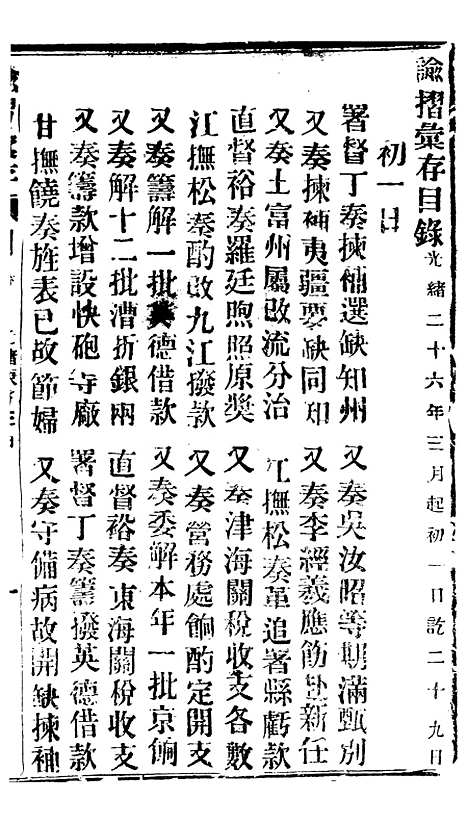 諭摺彙存目錄 光緒二十六年三月起初一日訖二十九日
初一日
署督丁奏揀補選缺知州 又奏吳汝昭等期滿甄別
又奏揀補夷疆要缺同知 又奏李經義應飭赴新任
又奏土富州屬改流分治 江撫松奏革追署縣虧款
直督裕奏羅廷煦照原獎 又奏津海關稅收支各數
江撫松奏酌改九江撥款 又奏營務處餉酌定開支
又奏籌解一批英德借款 又奏委解本年一批京餉
又奏解十二批漕折銀兩 直督裕奏東海關稅收支
又奏籌款增設快砲等廠 署督丁奏籌撥英德借款
甘撫饒奏旌表已故節婦 又奏守備病故開缺揀補
一